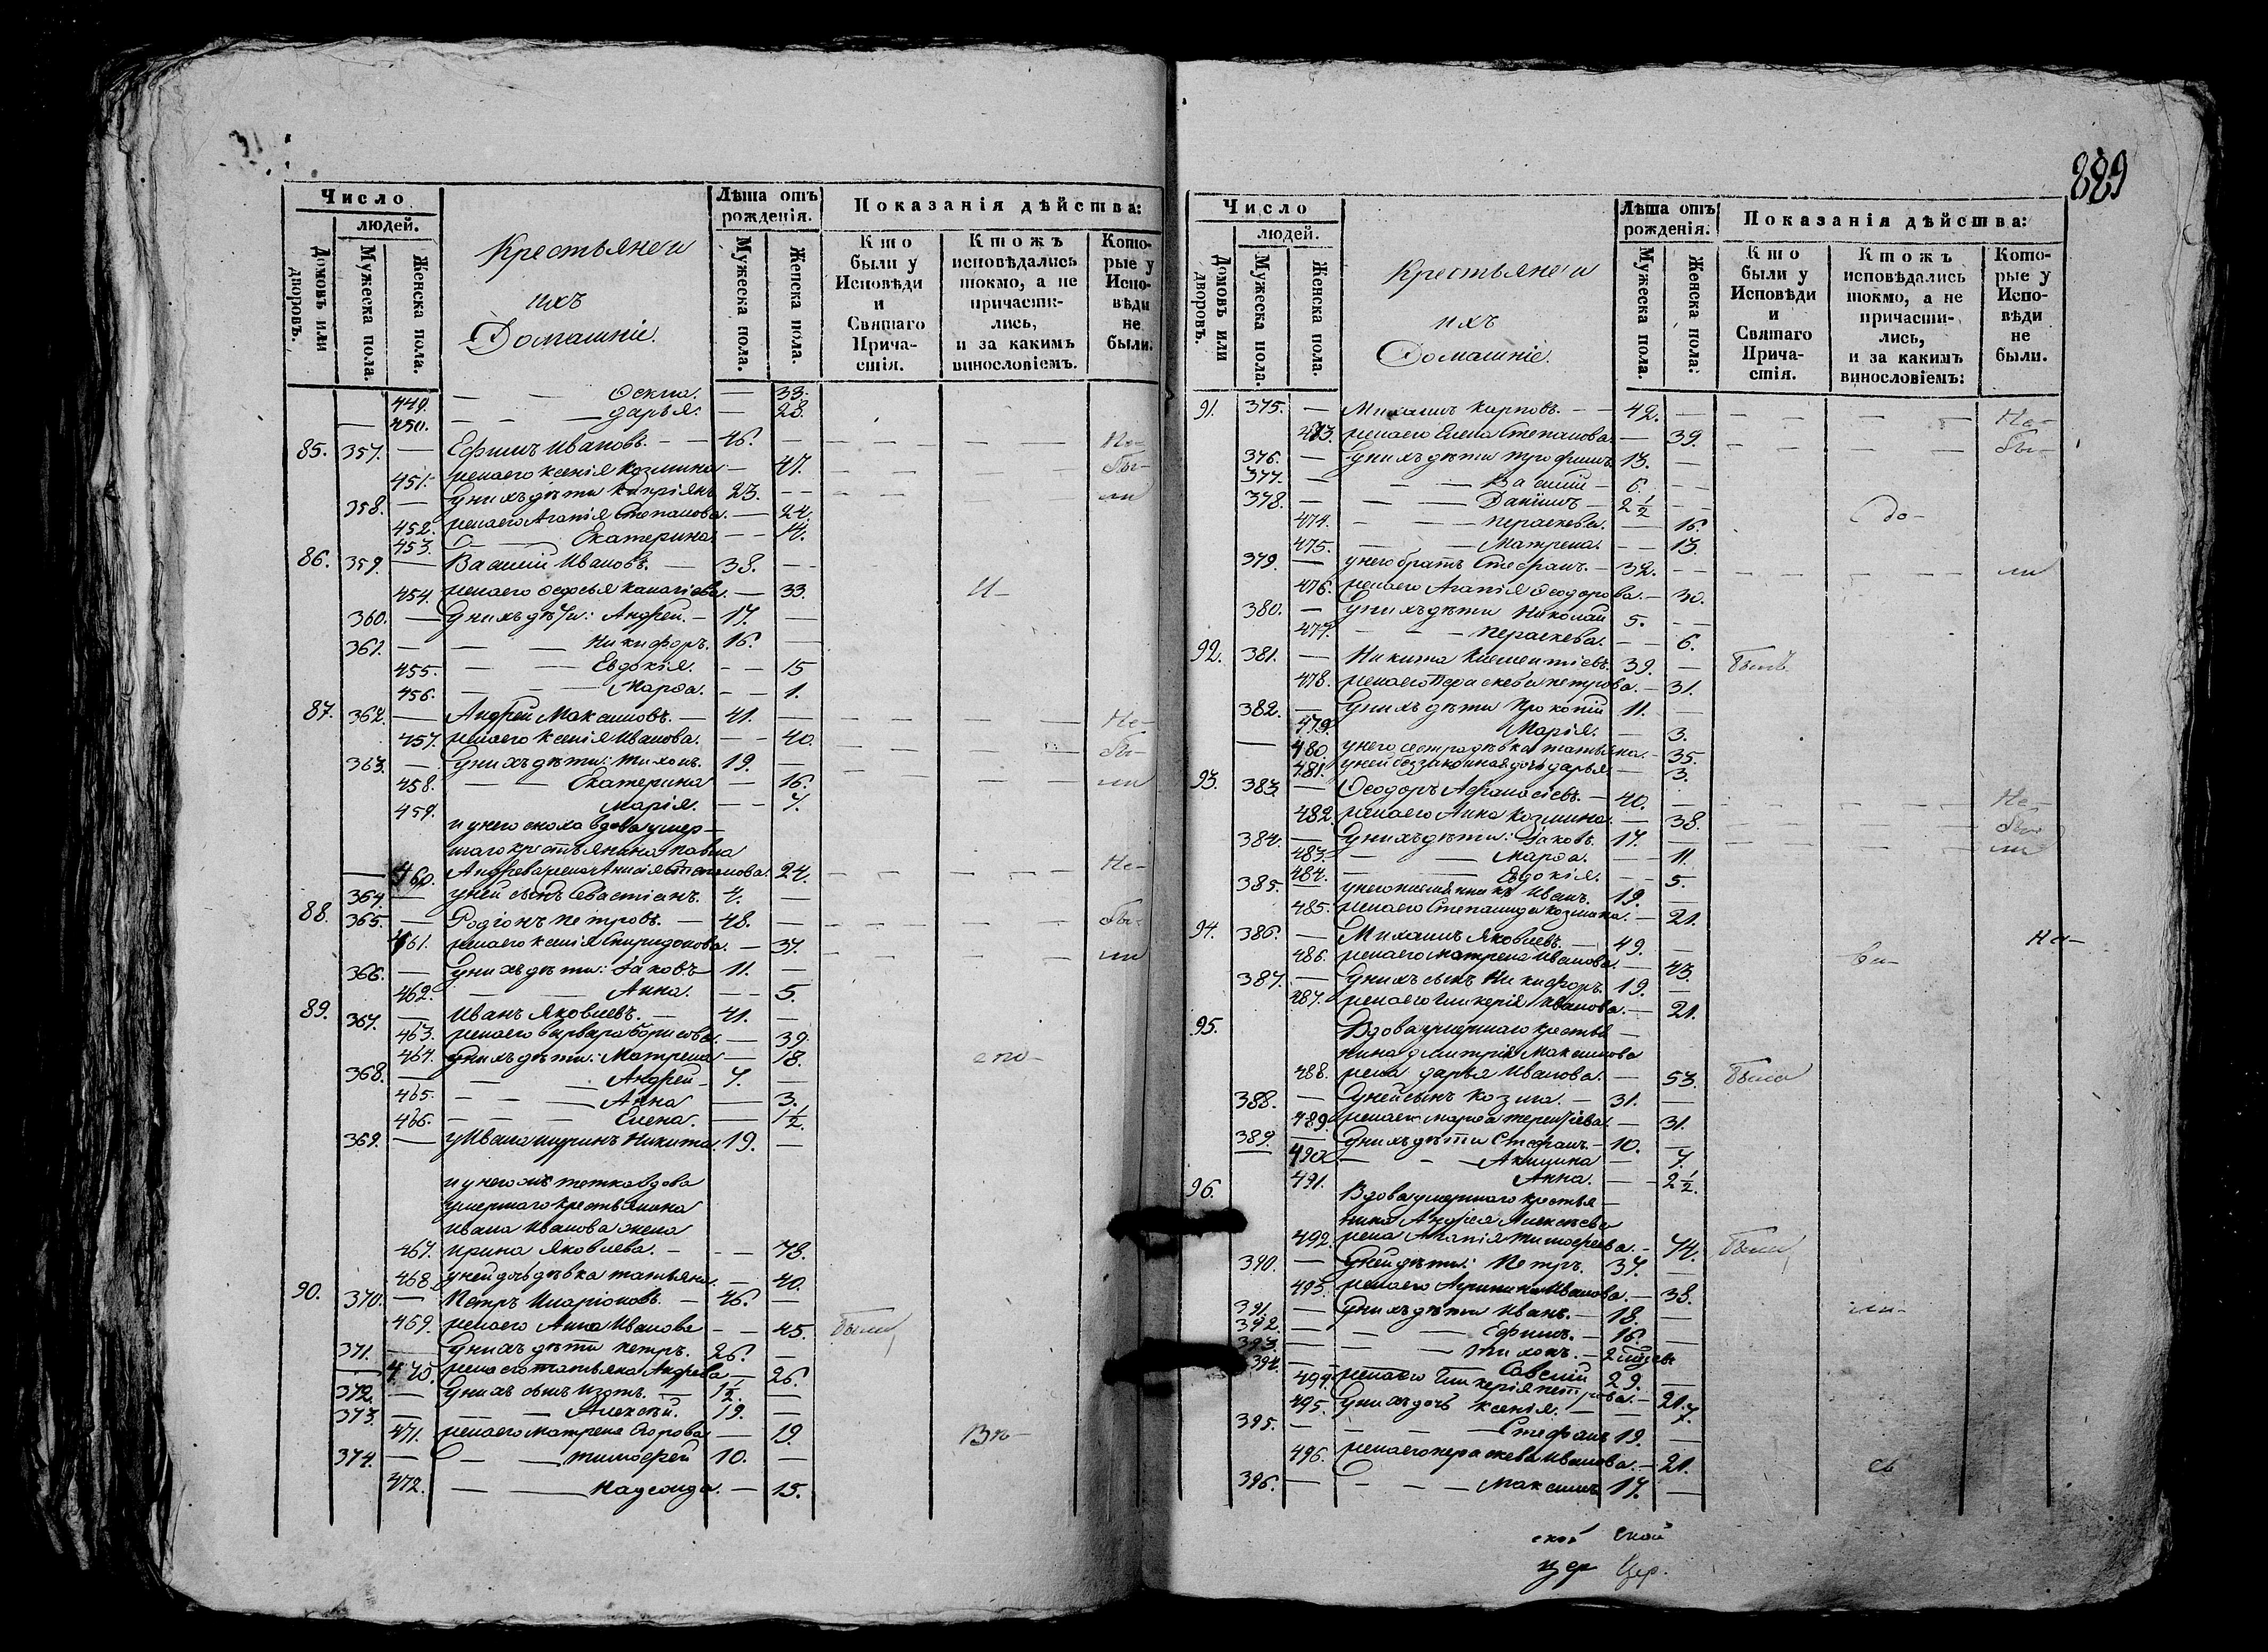 889
Число
людей.
Домовъ или дворовъ.
Мужеска пола.
Женска пола.
Крестьяне и
ихъ
Домашніе.
Лѣта отъ
рожденія.
Мужеска пола.
Женска пола.
Показанія дѣйства:
Кто были у Исповѣди и Святаго Причастія.
Ктожъ исповѣдались токмо, а не причастились, и за какимъ винословіемъ.
Которые у Исповѣди не были.
449. — — Ѳекла. — 33.
450. — — дарья. — 28.
85. 357. — Ефимъ Ивановъ. — 46. — Не-
451. жена его Ксенія Козмина — 47. бы-
358. — у нихъ дѣти Кипріянъ 23. — ли
452. жена его Агапія Степанова. — 24.
453. — Екатерина. — 14.
86. 359. — Василій Ивановъ. — 38. —
454. жена его — 33. И-
360. — у нихъ дѣти: Андрей. — 17. —
361. — Никифоръ. 16. —
455. — Евдокія. — 15
456. — Марѳа. — 1.
87. 362. — Андрей Максимовъ. — 41. — Не-
457. жена его Ксенія Иванова. — 40. бы-
363. — у нихъ дѣти: Тихонъ. 19. —
458. — Екатерина — 16. ли
459. Марія. — 7.
и у него сноха вдова умер-
шаго крестьянина Павла
460. Андреева жена Анисія Степанова. 24. Не-
364. — у ней сынъ Севастіанъ. 4. —
88. 365. — Родіонъ Петровъ. — 48. — бы-
461. жена его Ксенія Спиридонова. — 37. ли
366. — у нихъ дѣти: Іаковъ 11. —
462. — Анна. — 5.
89. 367. — Иванъ Яковлевъ. — 41. —
463. жена его Варвара Борисова. — 39.
464. у нихъ дѣти: Матрена — 18. спо-
368. — Андрей — 7. —
465. — Анна — 3.
466. — Елена. — 1½.
369. — у Ивана шуринъ Никита. 19. —
и у него же тетка вдова
умершаго крестьянина
Ивана Иванова жена
467. Ирина Яковлева. — 78.
468. у ней дочь дѣвка татьяна. — 40.
90. 370. — Петръ Иларіоновъ. — 46. —
469. жена его Анна Иванова — 45. были
371. — у нихъ дѣти Петръ. 26. —
470. жена его татьяна Андреева — 26.
372. — у нихъ сынъ Изотъ. — 1½. —
373. — Алексѣй. 19. —
471. жена его Матрена Егорова — 19. Вѣ-
374. — тимоѳей 10. —
472. — — 15.
Число
людей.
Домовъ или дворовъ.
Мужеска пола.
Женска пола.
Крестьяне и
ихъ
Домашніе.
Лѣта отъ
рожденія.
Мужеска пола.
Женска пола.
Показанія дѣйства:
Кто были у Исповѣди и Святаго Причастія.
Ктожъ исповѣдались токмо, а не причастились, и за какимъ винословіемъ:
Которые у Исповѣди не были.
91. 375. — Михаилъ Карповъ. — 42. — Не-
473. жена его Елена Степанова. — 39. бы-
376. — у нихъ дѣти Трофимъ 13. —
377. — Василій — 6. —
378. — Даніилъ — 2½ —
474. — Пераскева. — 16. до-
475. — Матрена. — 13.
379. — у него братъ Стефанъ. — 32. — ли
476. жена его Агапія Ѳеодорова. — 30.
380. — у нихъ дѣти Николай 5. —
477. — Пераскева. — 6.
92. 381. — Никита Климентіевъ. 39. — былъ
478. жена его Пераскева Петрова. — 31.
382. — у нихъ дѣти Прокопій 11. —
479. Марія. — 3.
480. у него сестра дѣвка татьяна. — 35.
481. у ней беззаконная дочь дарья. — 3.
93. 383. — Ѳеодоръ Аѳанасіевъ. — 40. — Не-
482. жена его Анна Козмина. — 38. бы-
384. — у нихъ дѣти: Іаковъ. 17. — ли
483. — Марѳа. — 11.
484. — Евдокія. — 5.
385. у него племянникъ Иванъ. 19. —
485. жена его Степанида Козмина. — 21.
94. 386. — Михаилъ Яковлевъ. — 49. — Не-
486. жена его Матрена Иванова. — 43.
387. — у нихъ сынъ Никифоръ. 19. —
487. жена его Гликерія Иванова. — 21.
95. Вдова умершаго крестья-
нина Димитрія Максимова
488. жена дарья Иванова. — 53. была
388. — у ней сынъ Козма. — 31. —
489. жена его Марѳа Терентіева. — 31.
389. — у нихъ дѣти Стефанъ — 10. —
490. — Акилина — 7.
491. — Анна. — 2½.
96. Вдова умершаго крестья-
нина Андрея Алексѣева
492. жена Агапія Тимоѳеева. — 74. были
390. — у ней дѣти: Петръ. 37. —
493. жена его Агриппина Иванова. — 38.
391. — у нихъ дѣти Иванъ. — 18. —
392. — Ефимъ. — 16. —
393. — Тихонъ. — 2
394. — Савелій 29. —
494. жена его Гликерія Петрова. — 21.
495. у нихъ дочь Ксенія. — 7.
395. — Стефанъ 19. —
496. жена его Пераскева Иванова. — 21. сь
396. — Максимъ 17. —
ской ской
цер цер.